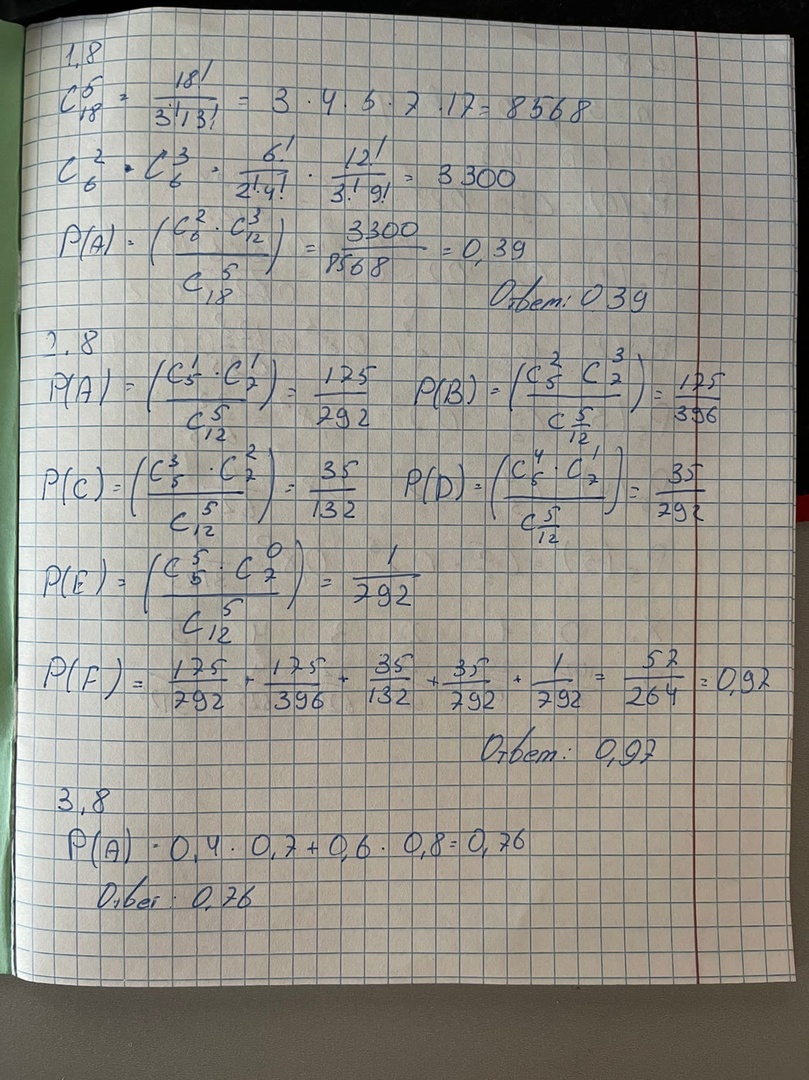 1,8
C_18^5 = 18!/(3!13!) = 3 · 4 · 6 · 7 · 17 = 8568
C_6^2 · C_6^3 = 6!/(2!4!) · 12!/(3!9!) = 3300
P(A) = (C_6^2 · C_12^3 / C_18^5) = 3300/8568 = 0,39
Ответ: 0.39
2,8
P(A) = (C_5^1 · C_7^1 / C_12^5) = 175/792 P(B) = (C_5^2 C_7^3 / C_12^5) = 175/396
P(C) = (C_5^3 · C_7^2 / C_12^5) = 35/132 P(D) = (C_5^4 · C_7^1 / C_12^5) = 35/792
P(E) = (C_5^5 · C_7^0 / C_12^5) = 1/792
P(F) = 175/792 + 175/396 + 35/132 + 35/792 + 1/792 = 57/264 = 0,97
Ответ: 0,97
3,8
P(A) = 0,4 · 0,7 + 0,6 · 0,8 = 0,76
Ответ: 0,76